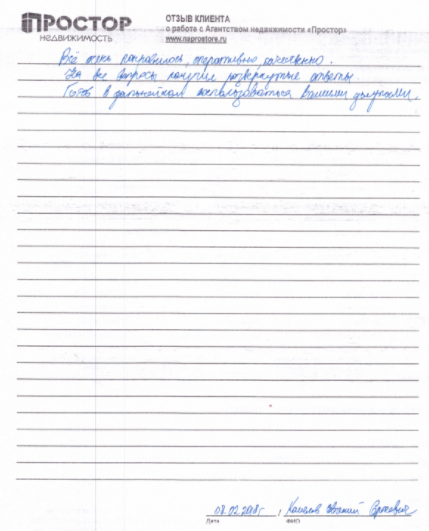 ПРОСТОР
НЕДВИЖИМОСТЬ
ОТЗЫВ КЛИЕНТА
о работе с Агентством недвижимости «Простор»
www.naprostore.ru
Всё очень понравилось, оперативно, качественно.
На все вопросы получил развернутые ответы.
Готов в дальнейшем воспользоваться Вашими услугами.
08.02.2018г.,
Евгений
Дата
ФИО